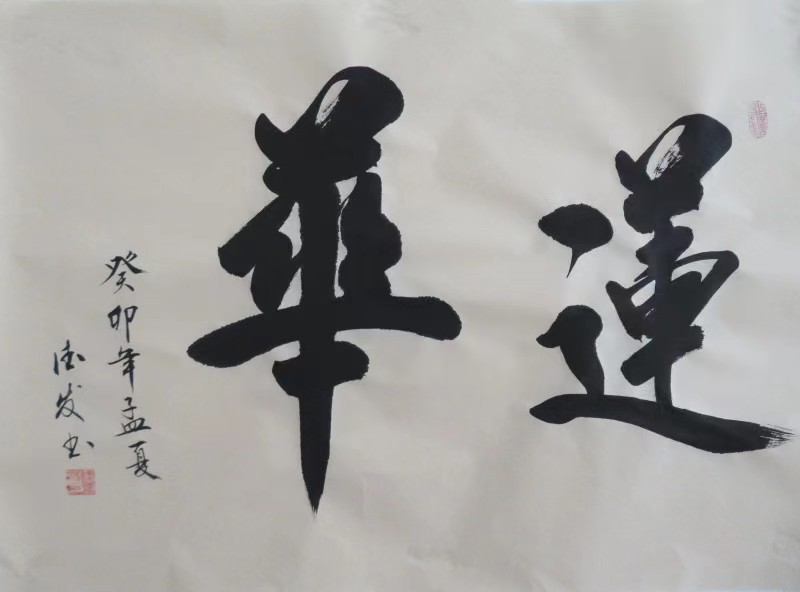 蓮華
癸卯年孟夏
德发书